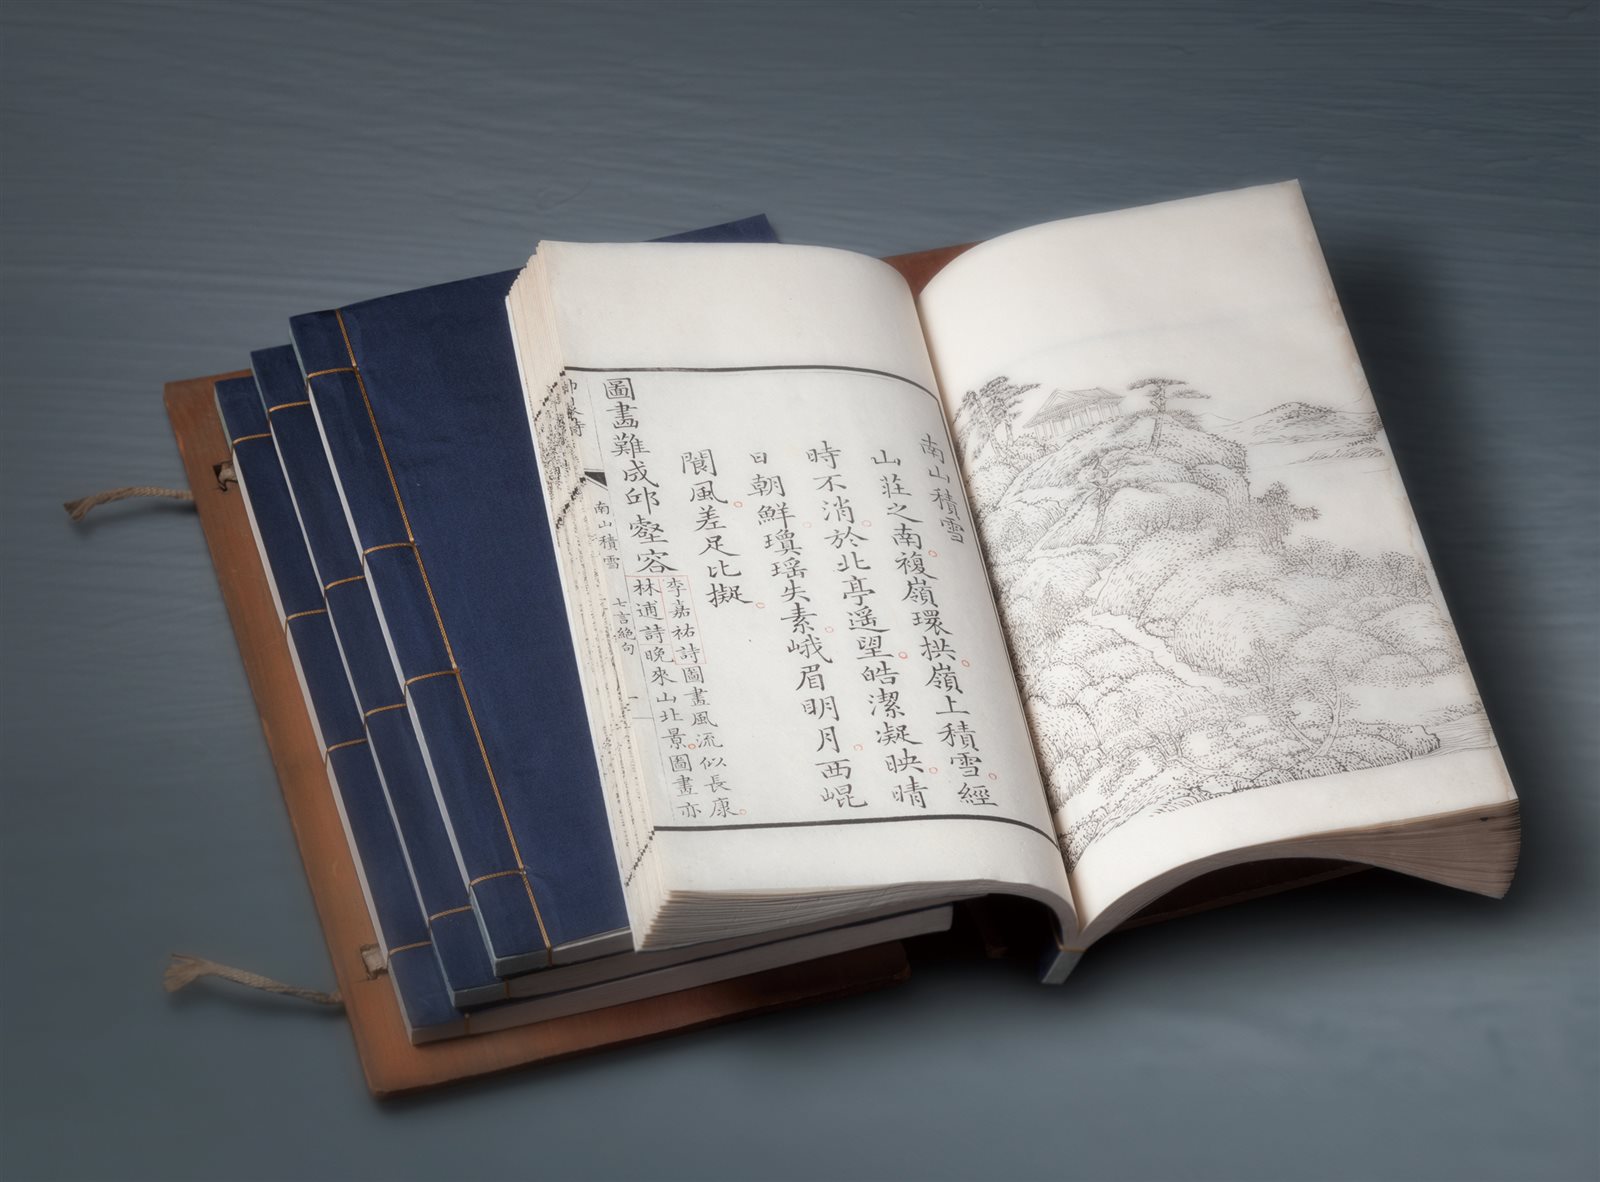 南山積雪
山莊之南複嶺環拱嶺上積雪經
時不消於北亭遥望皓潔凝映晴
日朝鮮瓊瑶失素峨眉明月西崐
閬風差足比擬
圖畵難成邱壑容
李嘉祐詩圖畫風流似長康
林逋詩晚來山北景圖畫亦
南山積雪
七言絶句